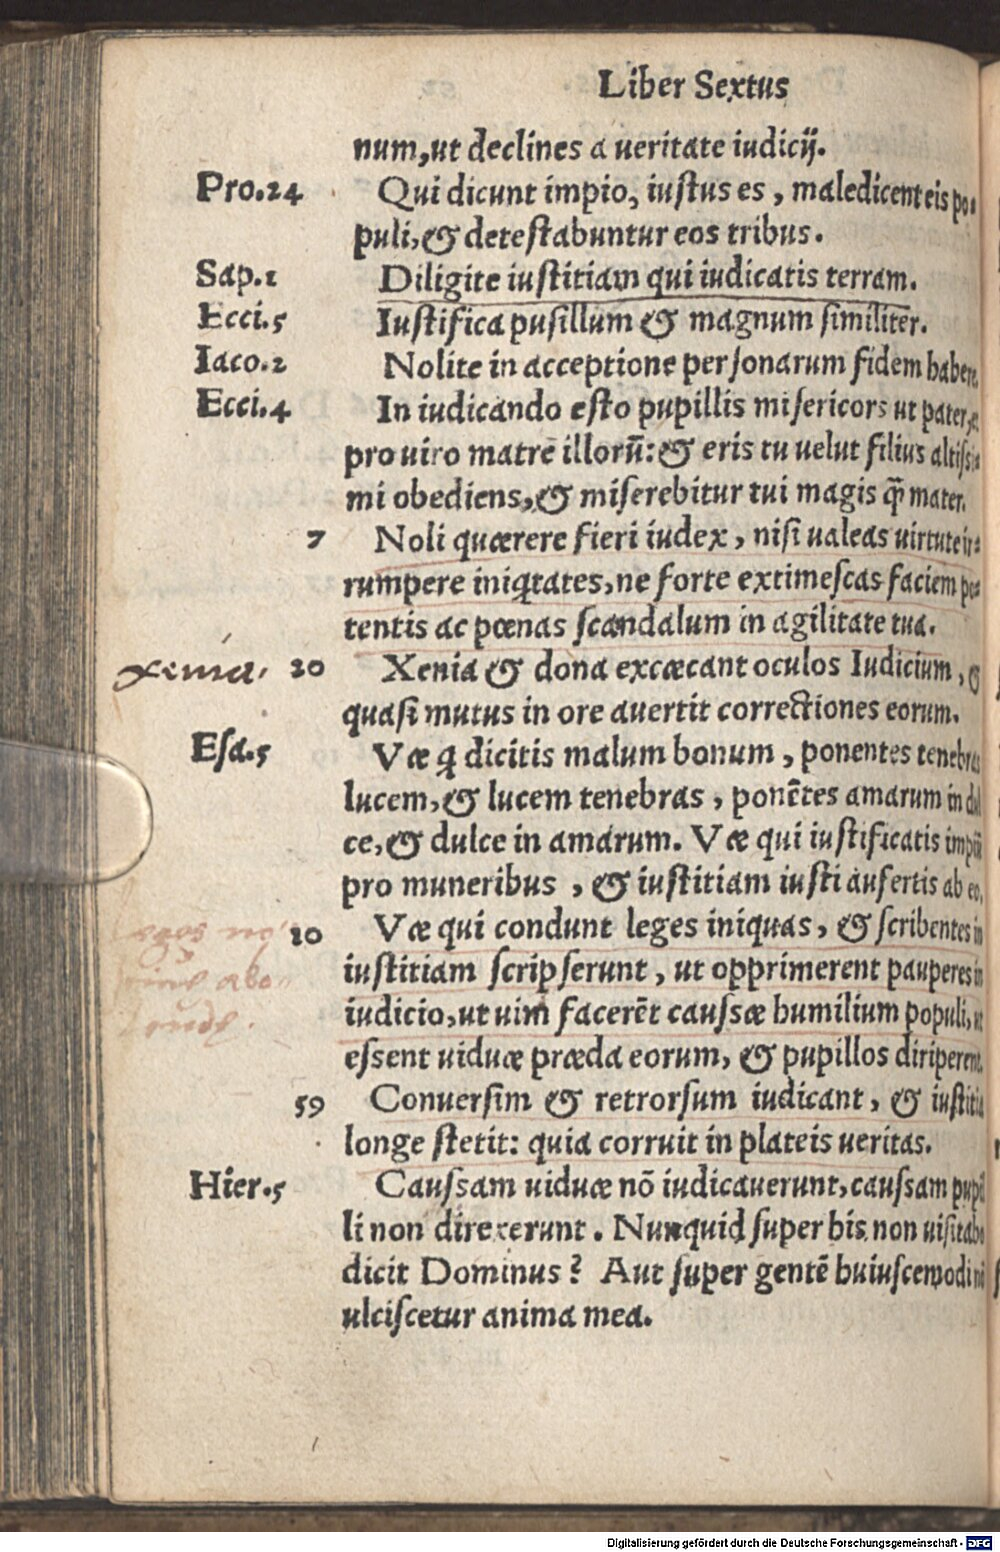 Liber Sextus
num, ut declines a ueritate iudicij.
Pro.24 Qui dicunt impio, iustus es, maledicent eis po-
puli, & detestabuntur eos tribus.
Sap.1 Diligite iustitiam qui iudicatis terram.
Ecci.5 Iustifica pusillum & magnum similiter.
Iaco.2 Nolite in acceptione personarum fidem habere
Ecci.4 In iudicando esto pupillis misericors ut pater,
pro uiro matrē illorū: & eris tu uelut filius altissi
mi obediens, & miserebitur tui magis q̃ mater.
7 Noli quærere fieri iudex, nisi ualeas uirtute ir-
rumpere iniqtates, ne forte extimescas faciem po-
tentis ac pœnas scandalum in agilitate tua.
Xenia. 20 Xenia & dona excæcant oculos Iudicium, &
quasi mutus in ore auertit correctiones eorum.
Esa.5 Væ q dicitis malum bonum, ponentes tenebras
lucem, & lucem tenebras, ponētes amarum in dul
ce, & dulce in amarum. Væ qui iustificatis impiū
pro muneribus, & iustitiam iusti aufertis ab eo.
10 Væ qui condunt leges iniquas, & scribentes in
iustitiam scripserunt, ut opprimerent pauperes in
iudicio, ut uim facerēt caussæ humilium populi, ut
essent uiduæ præda eorum, & pupillos diriperent.
59 Conuersim & retrorsum iudicant, & iustitia
longe stetit: quia corruit in plateis ueritas.
Hier.5 Caussam uiduæ nō iudicauerunt, caussam pupil
li non direxerunt. Nunquid super his non uisitabo
dicit Dominus? Aut super gentē huiuscemodi
ulciscetur anima mea.
Digitalisierung gefördert durch die Deutsche Forschungsgemeinschaft - DFG